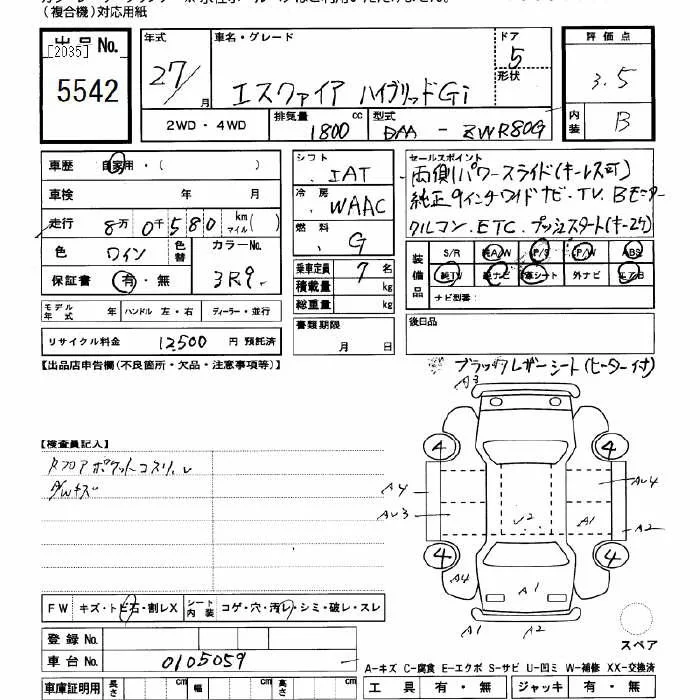 （複合機）対応用紙
出品No.
[2035]
5542
年式
27/
月
車名・グレード
エスクァイア ハイブリッドGi
ドア
5
形状
評価点
3.5
内装
B
2WD・4WD
排気量
1800
cc
型式
DAA - ZWR80G
車歴
自家用・（ ）
車検
年 月
走行
8万0千580
km
マイル
( )
色
ワイン
色替
カラーNo.
3R9
保証書
有・無
モデル年式
年
ハンドル 左・右
ディーラー・並行
リサイクル料金
12500
円 預託済
シフト
IAT
冷房
WAAC
燃料
G
乗車定員
7
名
積載量
kg
総重量
kg
書類期限
月 日
セールスポイント
両側パワースライド(キーレス可)
純正9インチワイドナビ・TV.Bモニター
クルコン.ETC.プッシュスタート(キー2ケ)
装備品
S/R
純A/W
P/S
P/W
ABS
純TV
純ナビ
革シート
外ナビ
エアB
ナビ型番：
後日品
ブラックレザーシート(ヒーター付)
【出品店申告欄(不良箇所・欠品・注意事項等)】
【検査員記入】
A3
4
4
A4
AU3
AU4
A2
A1
4
4
A4
A1
A2
スペア
FW
キズ・トビ石・割レX
シート内装
コゲ・穴・汚レ・シミ・破レ・スレ
登録No.
車台No.
0105059
A-キズ C-腐食 E-エクボ S-サビ U-凹ミ W-補修 XX-交換済
車庫証明用
長さ
cm
幅
cm
高さ
cm
工具
有・無
ジャッキ
有・無